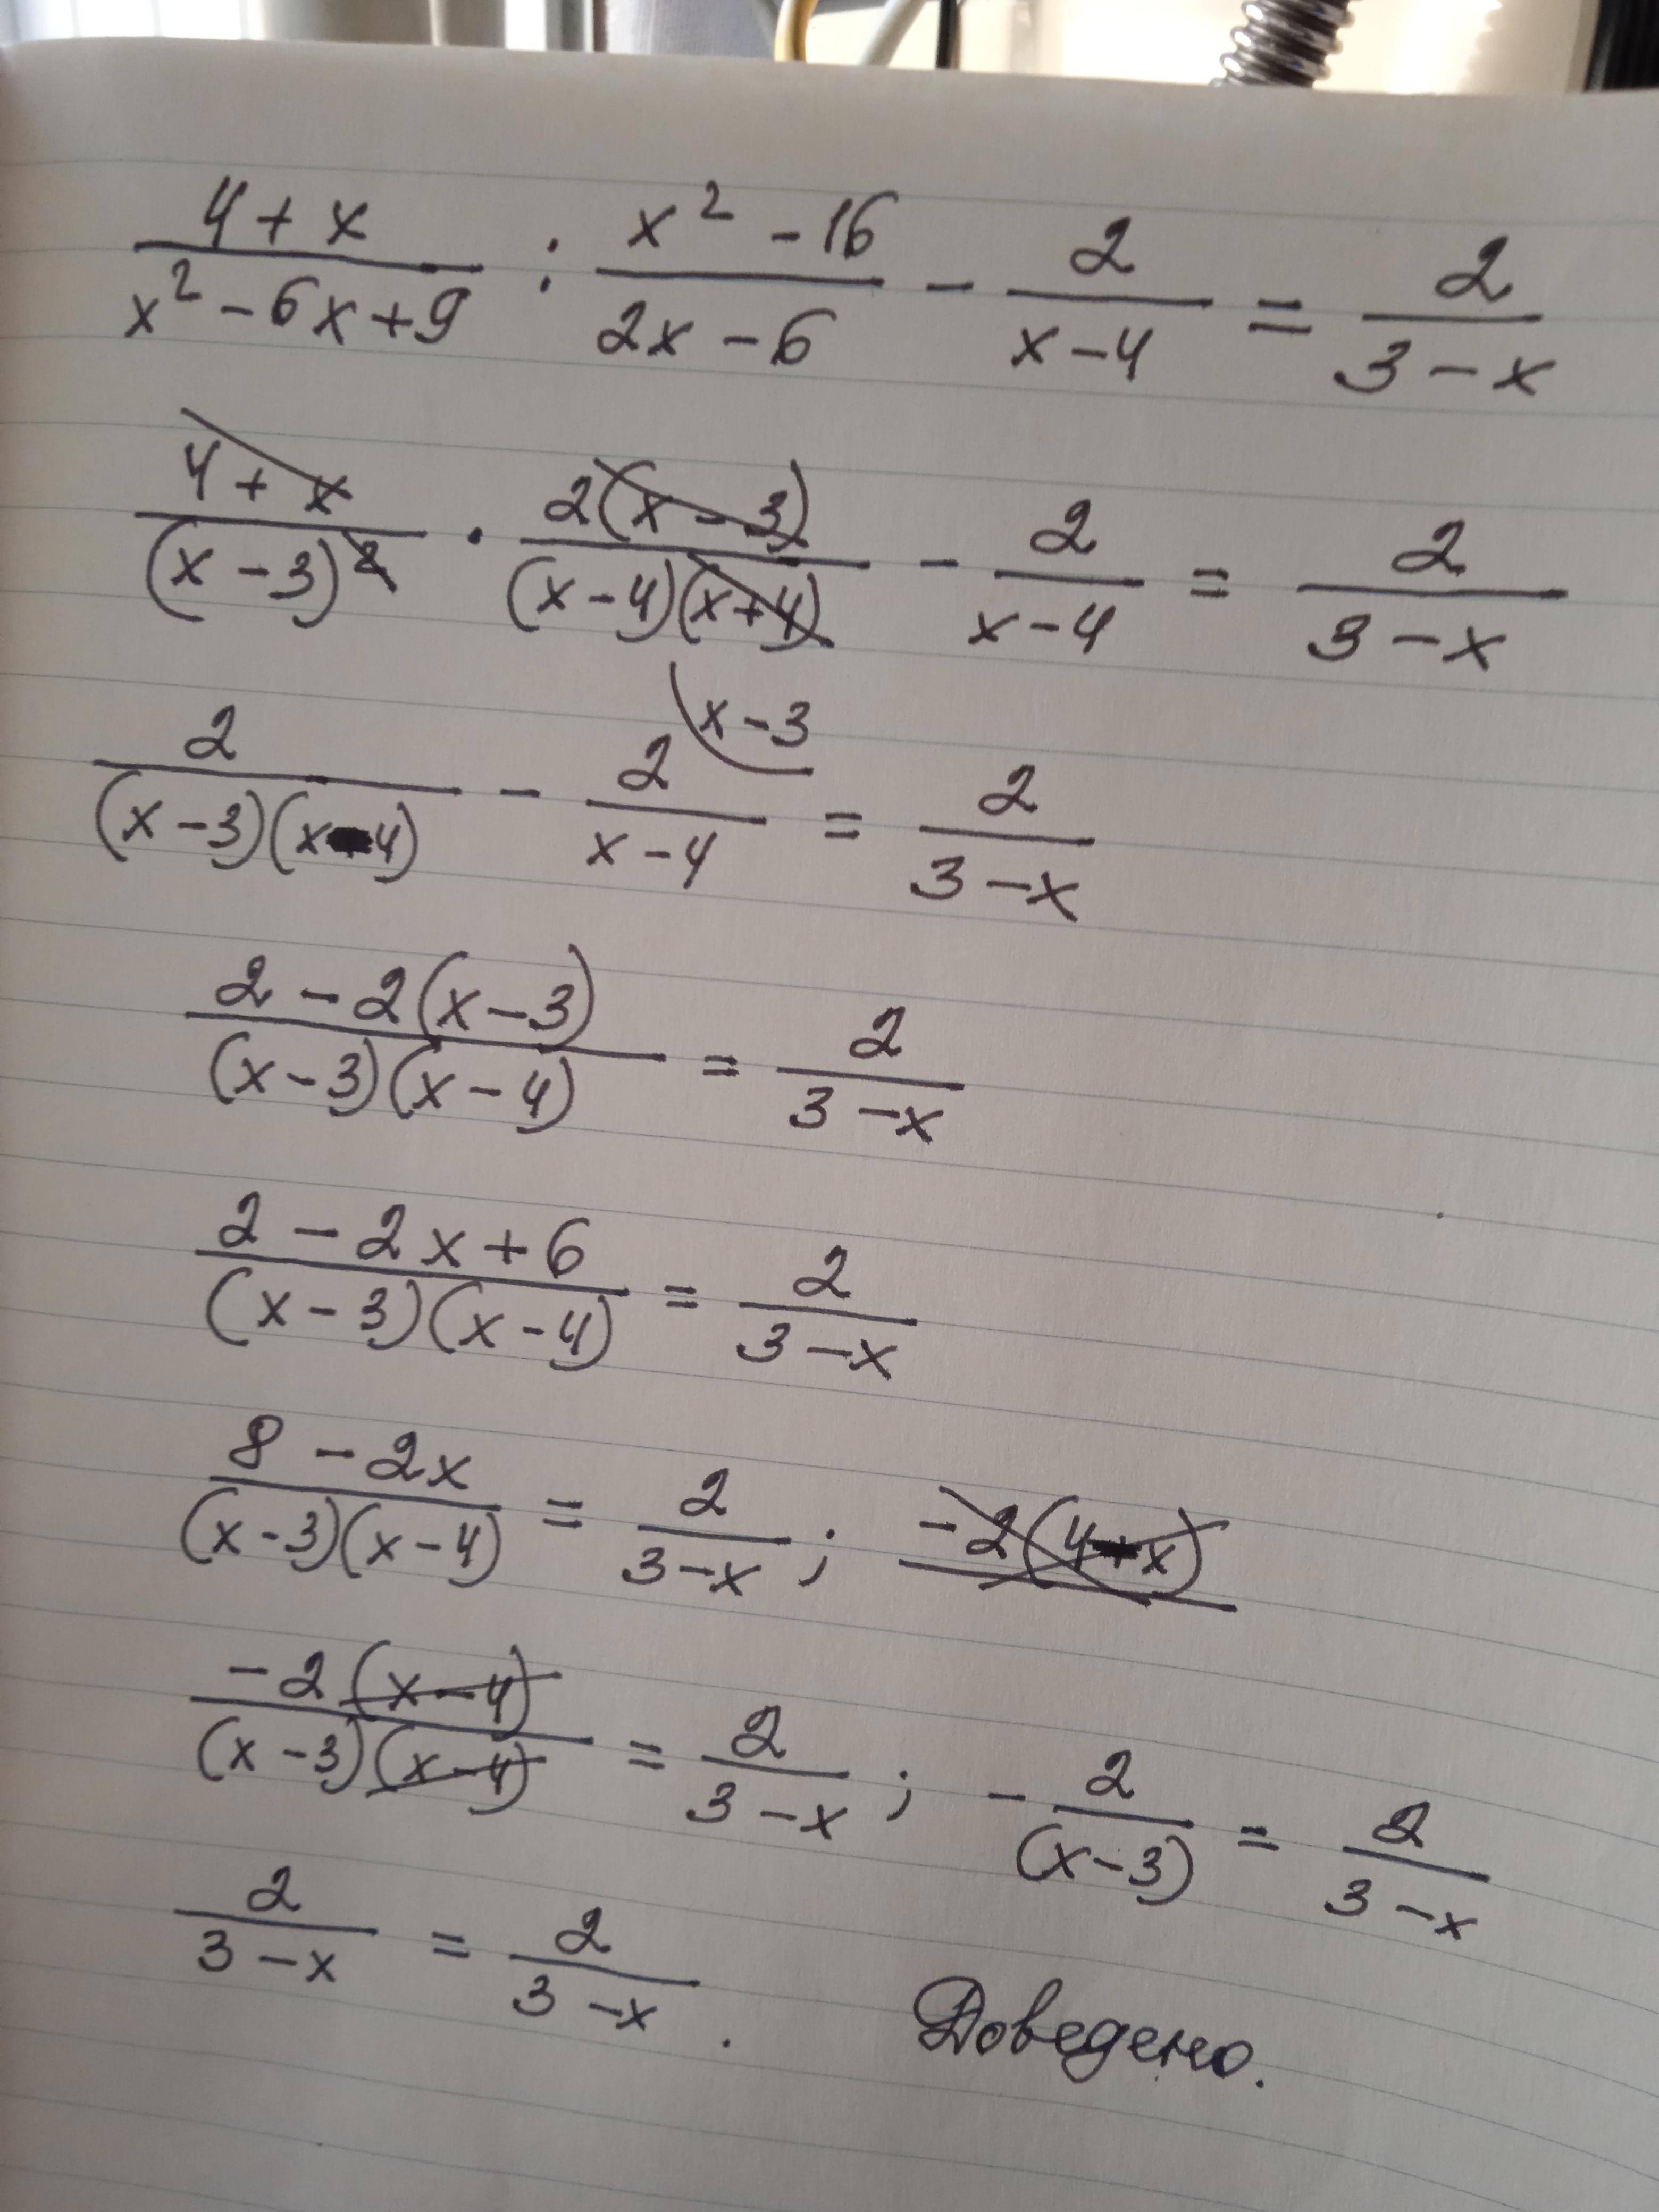 \frac{4+x}{x^2-6x+9} : \frac{x^2-16}{2x-6} - \frac{2}{x-4} = \frac{2}{3-x}
\frac{4+x}{(x-3)^2} \cdot \frac{2(x-3)}{(x-4)(x+4)} - \frac{2}{x-4} = \frac{2}{3-x}
\frac{2}{(x-3)(x-4)} - \frac{2}{x-4}^{(x-3} = \frac{2}{3-x}
\frac{2-2(x-3)}{(x-3)(x-4)} = \frac{2}{3-x}
\frac{2-2x+6}{(x-3)(x-4)} = \frac{2}{3-x}
\frac{8-2x}{(x-3)(x-4)} = \frac{2}{3-x}; -2(4-x)
\frac{-2(x-4)}{(x-3)(x-4)} = \frac{2}{3-x}; -\frac{2}{(x-3)} = \frac{2}{3-x}
\frac{2}{3-x} = \frac{2}{3-x}. Доведено.